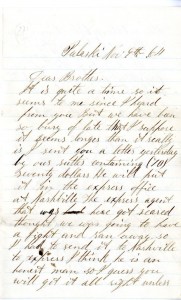 Pulaski Nov 4th 64
Dear Brother.
It is quite a time so it
seems to me since I heard
from you but we have ben
so busy of late that I suppose
it seems longer than it really
is I sent you a letter yesterday
by our sutler containing (70)
Seventy dollars He will put
it in the express office
at Nashville the express agent
that was here got scared
thought we was going to have
a fight and ran away so
I had to send it to Nashville
to express I think he is an
honest man so I guess you
will get it all right unless